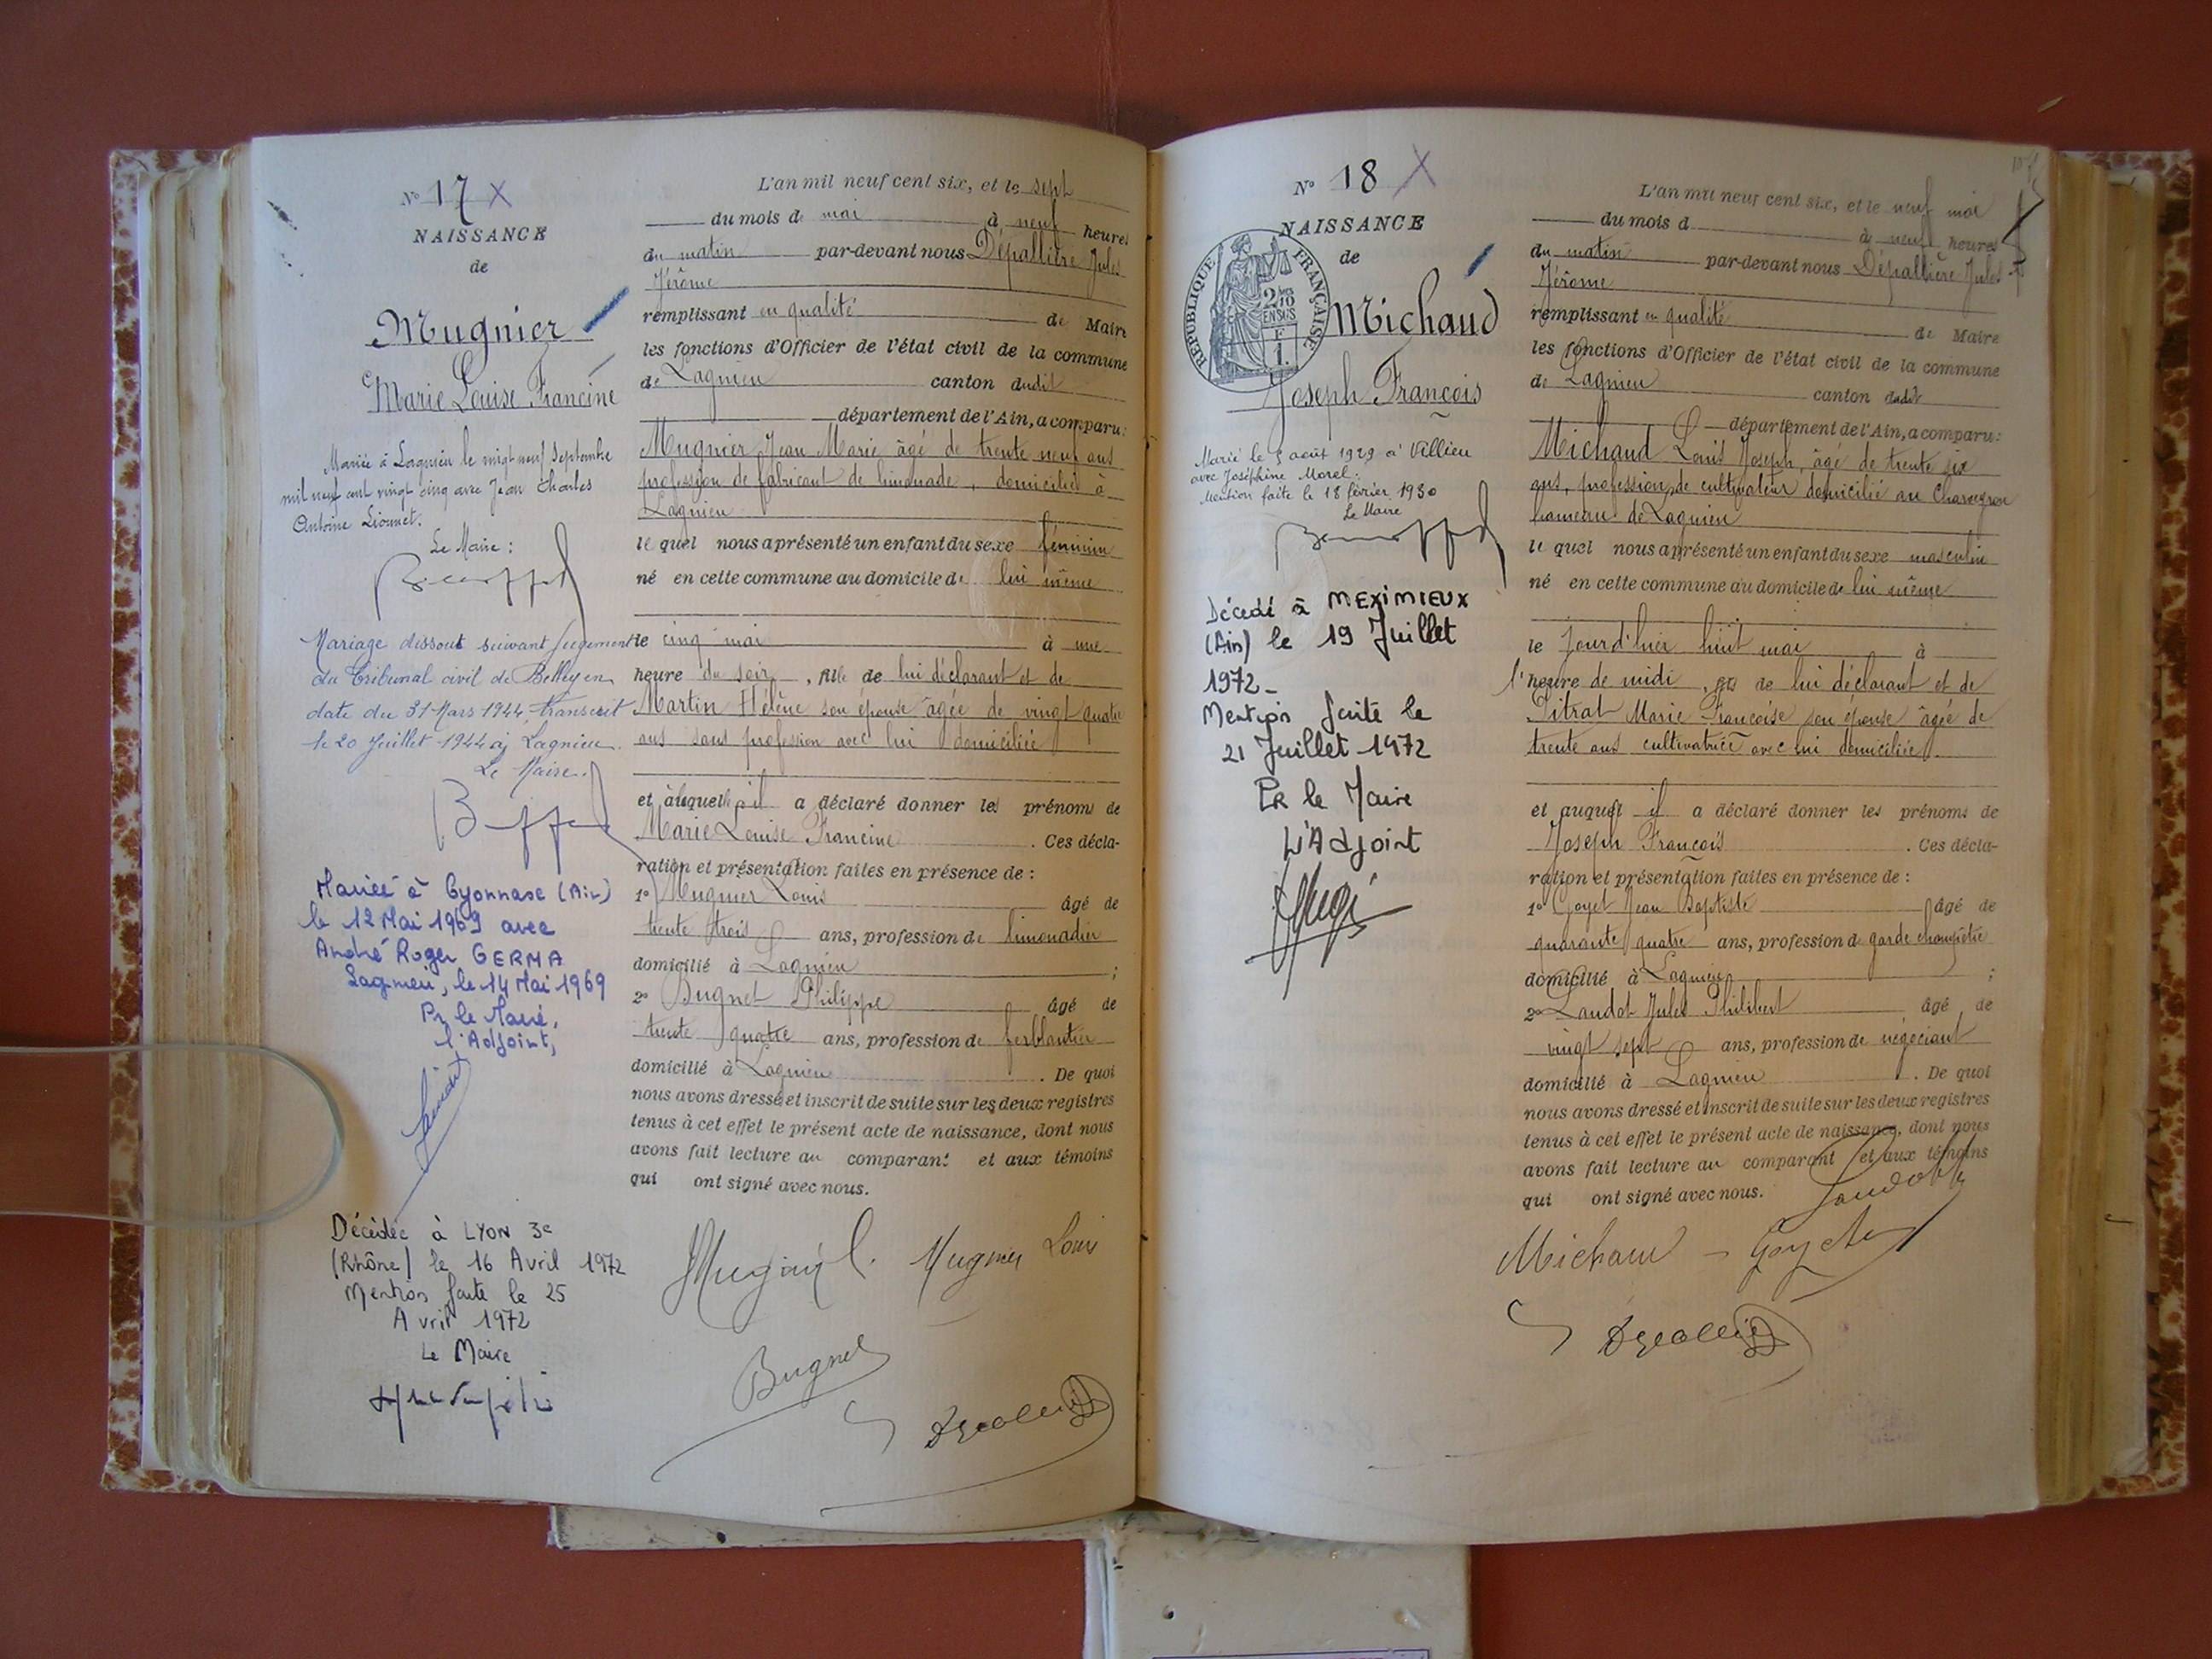 N° 17 X
NAISSANCE
de
Mugnier
Marie Louise Francine
Mariée à Lagnieu le vingt neuf Septembre
mil neuf cent vingt cinq avec Jean Charles
Antoine Lionnet.
Le Maire :
Mariage dissout suivant jugement
du Tribunal civil de Belley en
date du 31 Mars 1944, transcrit
le 20 Juillet 1944 à Lagnieu.
Le Maire.
Mariée à Oyonnaxe (Ain)
le 12 Mai 1969 avec
André Roger GERMA
Lagnieu, le 14 Mai 1969
Pr le Maire,
l'Adjoint,
Décédée à LYON 3e
(Rhône) le 16 Avril 1972
Mention faite le 25
Avril 1972
Le Maire
L'an mil neuf cent six, et le sept
du mois de mai à neuf heures
du matin par-devant nous Dépallière Jules
Jérôme
remplissant en qualité de Maire
les fonctions d'Officier de l'état civil de la commune
de Lagnieu canton dudit
département de l'Ain, a comparu :
Mugnier Jean Marie âgé de trente neuf ans
profession de fabricant de limonade, domicilié à
Lagnieu
le quel nous a présenté un enfant du sexe féminin
né en cette commune au domicile de lui même
le cinq mai à une
heure du soir, fille de lui déclarant et de
Martin Hélène son épouse âgée de vingt quatre
ans sans profession avec lui domiciliée
et à laquelle il a déclaré donner les prénoms de
Marie Louise Francine . Ces décla-
ration et présentation faites en présence de :
1° Mugnier Louis âgé de
trente trois ans, profession de limonadier
domicilié à Lagnieu ;
2° Bugnet Philippe âgé de
trente quatre ans, profession de ferblantier
domicilié à Lagnieu . De quoi
nous avons dressé et inscrit de suite sur les deux registres
tenus à cet effet le présent acte de naissance, dont nous
avons fait lecture au comparant et aux témoins
qui ont signé avec nous.
Mugnier Louis
Bugnet
N° 18 X
NAISSANCE
de
REPUBLIQUE FRANÇAISE
2/10 EN SUS
1 F.
Michaud
Joseph François
Marié le 3 août 1929 à Villieu
avec Joséphine Morel.
Mention faite le 18 février 1930
Le Maire
Décédé à MEXIMIEUX
(Ain) le 19 Juillet
1972 -
Mention faite le
21 Juillet 1972
Pr le Maire
L'Adjoint
L'an mil neuf cent six, et le neuf mai
du mois d à neuf heures
du matin par-devant nous Dépallière Jules
Jérôme
remplissant en qualité de Maire
les fonctions d'Officier de l'état civil de la commune
de Lagnieu canton dudit
département de l'Ain, a comparu :
Michaud Louis Joseph, âgé de trente six
ans, profession de cultivateur domicilié au Charveyron
hameau de Lagnieu
le quel nous a présenté un enfant du sexe masculin
né en cette commune au domicile de lui même
le jourd'hier huit mai à
l'heure de midi, de lui déclarant et de
Pitrat Marie Françoise son épouse âgée de
trente ans cultivatrice avec lui domiciliée.
et auquel il a déclaré donner les prénoms de
Joseph François . Ces décla-
ration et présentation faites en présence de :
1° Goyet Jean Baptiste âgé de
quarante quatre ans, profession de garde champêtre
domicilié à Lagnieu ;
2° Landot Jules Philibert âgé de
vingt sept ans, profession de négociant
domicilié à Lagnieu . De quoi
nous avons dressé et inscrit de suite sur les deux registres
tenus à cet effet le présent acte de naissance, dont nous
avons fait lecture au comparant et aux témoins
qui ont signé avec nous.
Landot
Michaud Goyet